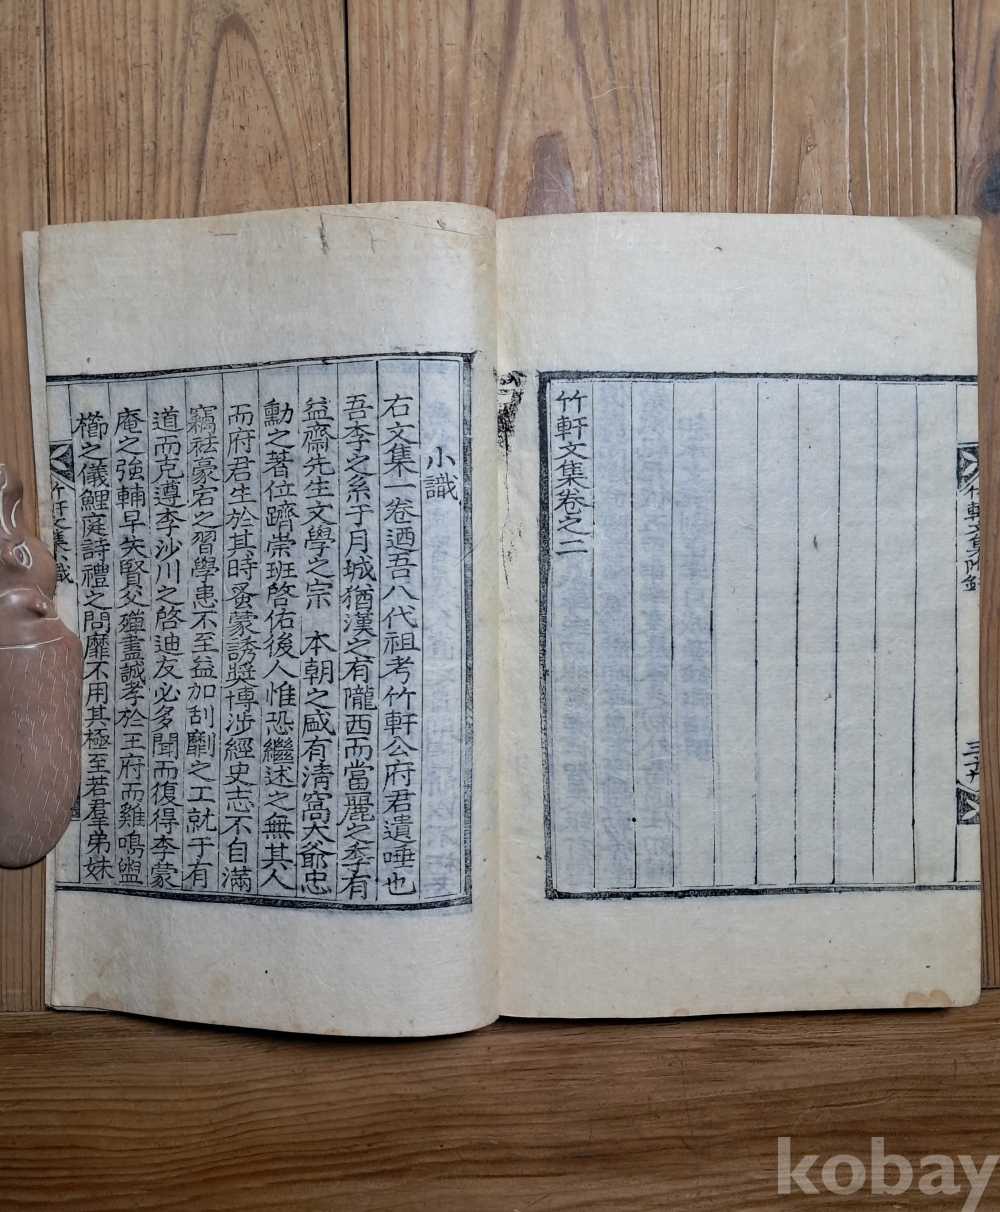 竹軒文集附錄
三十九
竹軒文集卷之二
小識
右文集一卷迺吾八代祖考竹軒公府君遺唾也
吾李之系于月城猶漢之有隴西而當麗之季有
益齋先生文學之宗 本朝之盛有清窩大爺忠
勳之著位躋崇班啓佑後人惟恐繼述之無其人
而府君生於其時蚤蒙誘奬博涉經史志不自滿
竊祛豪宕之習學患不至益加刮劘之工就于有
道而克遵李沙川之啓迪友必多聞而復得李蒙
庵之強輔早失賢父殫盡誠孝於王府而雞鳴盥
櫛之儀鯉庭詩禮之問靡不用其極至若羣弟妹
竹軒文集 識
kobay